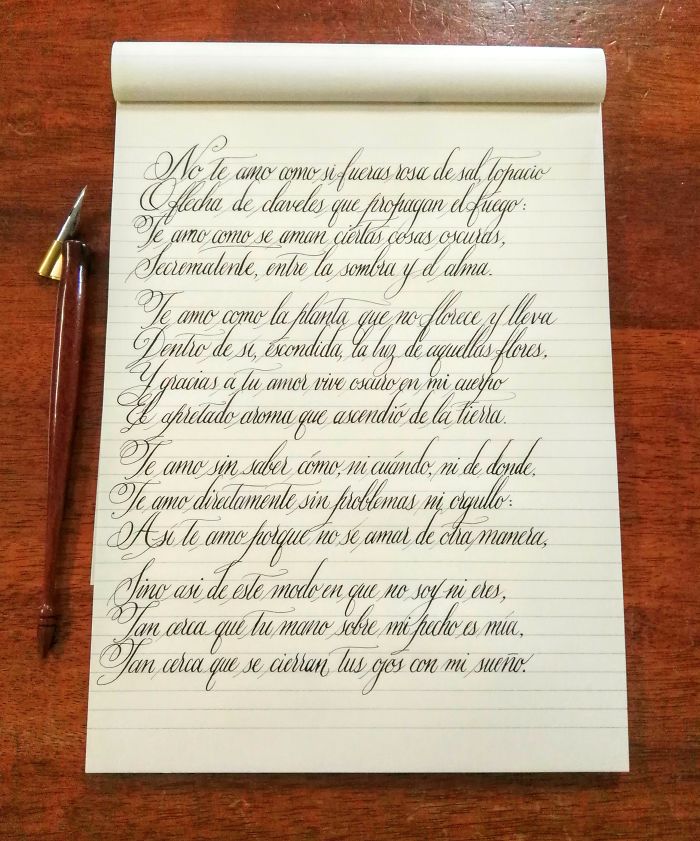 No te amo como si fueras rosa de sal, topacio
O flecha de claveles que propagan el fuego:
Te amo como se aman ciertas cosas oscuras,
Secrematente, entre la sombra y el alma.
Te amo como la planta que no florece y lleva
Dentro de sí, escondida, la luz de aquellas flores,
Y gracias a tu amor vive oscuro en mi cuerpo
El apretado aroma que ascendio de la tierra.
Te amo sin saber cómo, ni cuándo, ni de donde,
Te amo directamente sin problemas ni orgullo:
Así te amo porque no sé amar de otra manera,
Sino asi de este modo en que no soy ni eres,
Tan cerca que tu mano sobre mi pecho es mía,
Tan cerca que se cierran tus ojos con mi sueño.